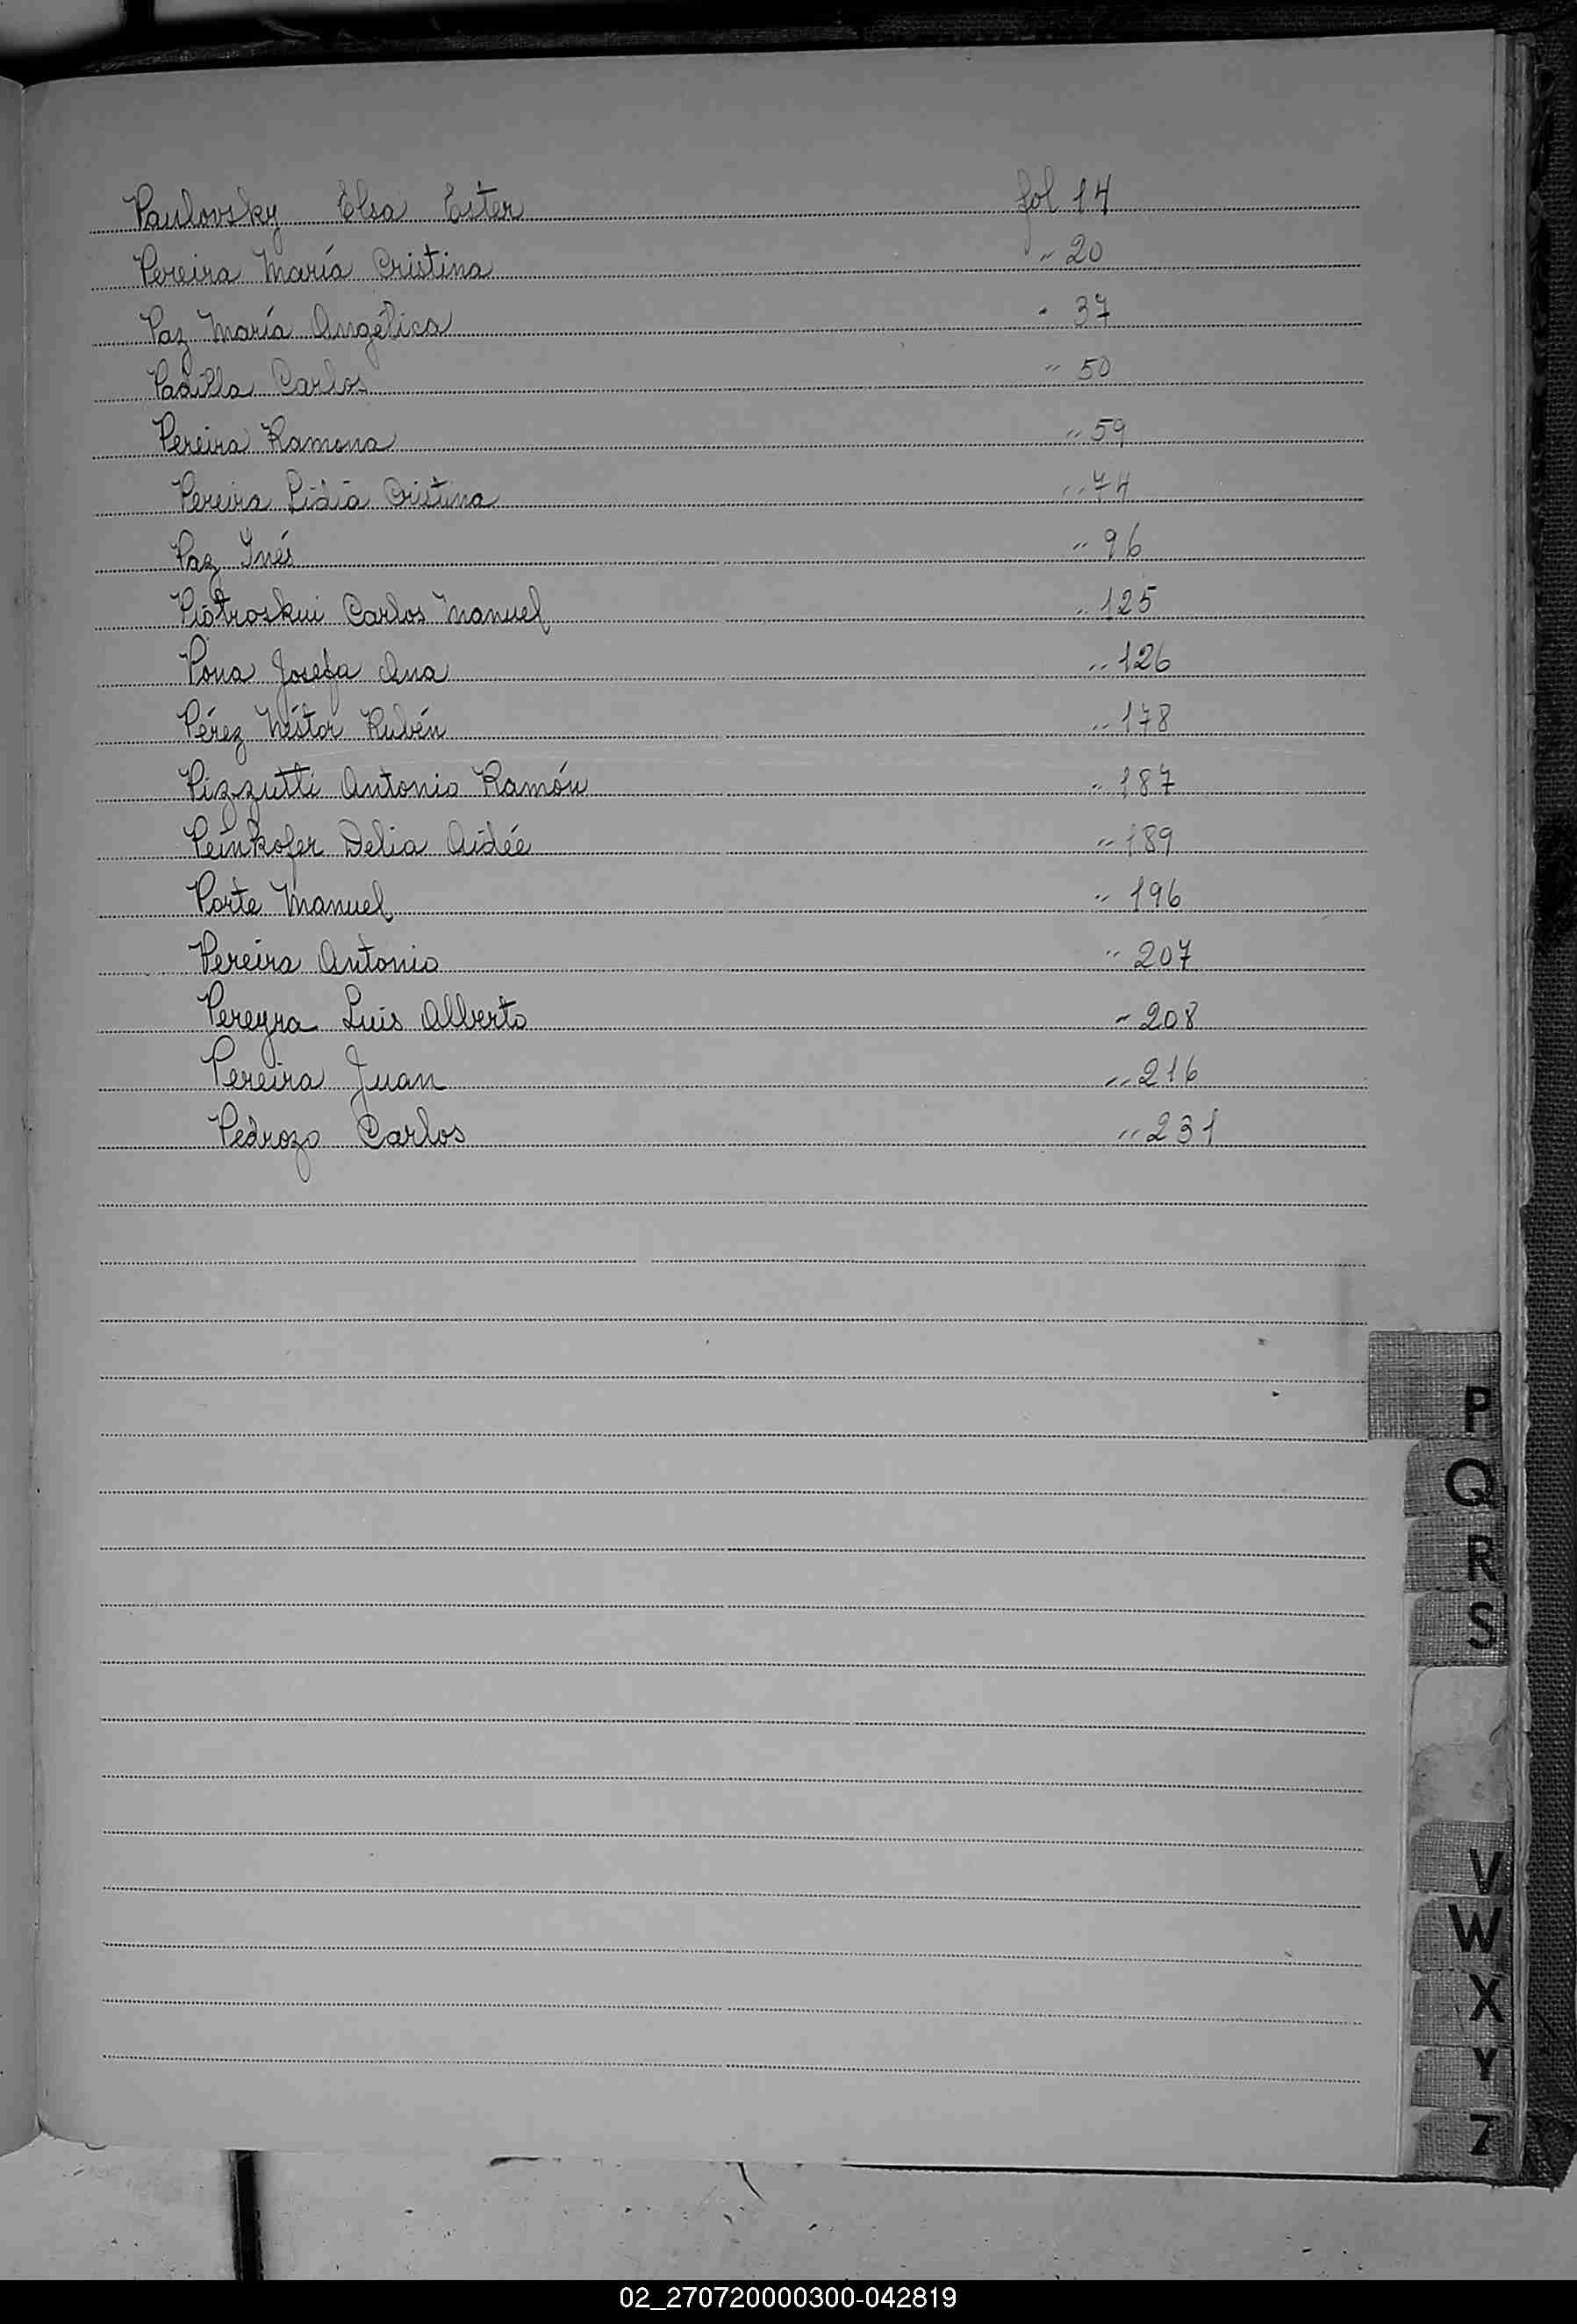 Paulovsky Elsa Ester fol 14
Pereira María Cristina " 20
Paz María Angélica " 37
Padilla Carlos " 50
Pereira Ramona " 59
Pereira Lidia Cristina " 74
Paz Inés " 96
Piotroskui Carlos Manuel " 125
Pona Josefa Ana " 126
Pérez Néstor Rubén " 178
Pizzutti Antonio Ramón " 187
Peinkofer Delia Aidée " 189
Porte Manuel " 196
Pereira Antonio " 207
Pereyra Luis Alberto " 208
Pereira Juan " 216
Pedrozo Carlos " 231
P
Q
R
S
V
W
X
Y
Z
02_270720000300-042819